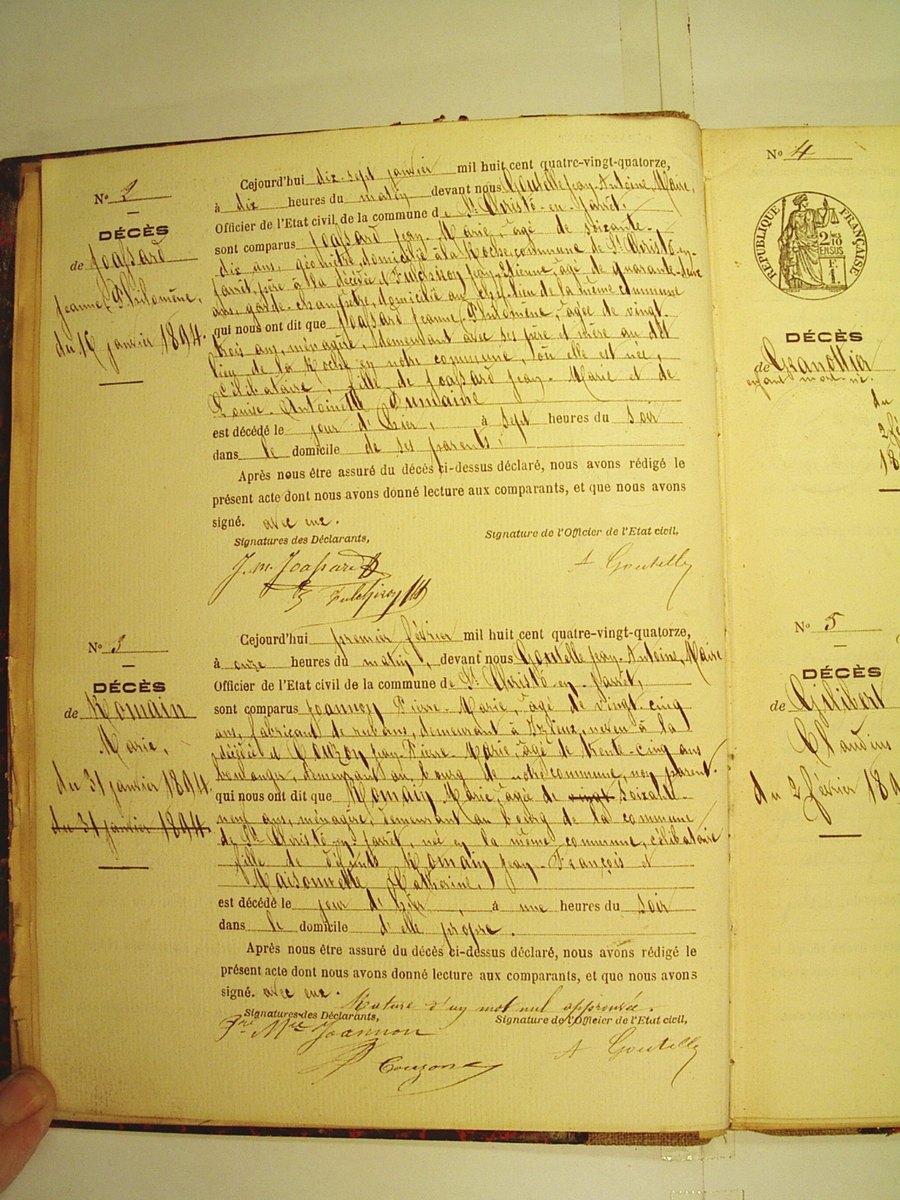 No 2
DÉCÈS
de Joassard
Jeanne Philomène,
du 16 janvier 1894.
Cejourd'hui dix-sept janvier mil huit cent quatre-vingt-quatorze,
à dix heures du matin devant nous Goutelle Jean-Antoine, Maire,
Officier de l'Etat civil de la commune de St Christô-en-Jarret,
sont comparus Joassard Jean-Marie, âgé de soixante-
dix ans, géomètre, domicilié à la Roche, commune de St Christô-en-
Jarret, père à la décédée et Fulchiron Jean, Etienne, âgé de quarante-
ans, garde-champêtre, domicilié au chef-lieu de la même commune
qui nous ont dit que Joassard Jeanne-Philomène, âgée de vingt
trois ans, ménagère, demeurant avec ses père et mère au dit
lieu de la Roche en notre commune, où elle est née,
célibataire, fille de Joassard Jean-Marie et de
Louise-Antoinette
est décédé le jour d'hier, à sept heures du soir
dans le domicile de ses parents.
Après nous être assuré du décès ci-dessus déclaré, nous avons rédigé le
présent acte dont nous avons donné lecture aux comparants, et que nous avons
signé. avec eux.
Signatures des Déclarants, Signature de l'Officier de l'Etat civil,
J. M. Joassard A Goutelle
No 3
DÉCÈS
de Romain
Marie,
du 31 janvier 1894.
du 31 janvier 1894.
Cejourd'hui premier février mil huit cent quatre-vingt-quatorze,
à onze heures du matin, devant nous Goutelle Jean-Antoine, Maire
Officier de l'Etat civil de la commune de St Christô-en-Jarret,
sont comparus Joannon Pierre-Marie, âgé de vingt cinq
ans, fabricant de rubans, demeurant à Izieux, neveu à la
décédée et Couzon Jean-Pierre-Marie, âgé de trente-cinq ans
boulanger, demeurant au bourg de notre commune, non parent.
qui nous ont dit que Romain Marie, âgée de vingt soixante
neuf ans, ménagère, demeurant au bourg de la commune
de St Christô-en-Jarret, née en la même commune, célibataire
fille de défunts Romain Jean-François et
Maisonnette Catherine,
est décédé le jour d'hier, à une heures du soir
dans le domicile d'elle propre.
Après nous être assuré du décès ci-dessus déclaré, nous avons rédigé le
présent acte dont nous avons donné lecture aux comparants, et que nous avons
signé. avec eux. Rature d'un mot nul approuvée.
Signatures des Déclarants, Signature de l'Officier de l'Etat civil,
Joannon
Couzon A Goutelle
No 4
RÉPUBLIQUE FRANÇAISE
DÉCÈS
de Granottier
enfant mort-né.
du
2 fé
18
No 5
DÉCÈS
de Gilibert
Claudius
du 2 février 189